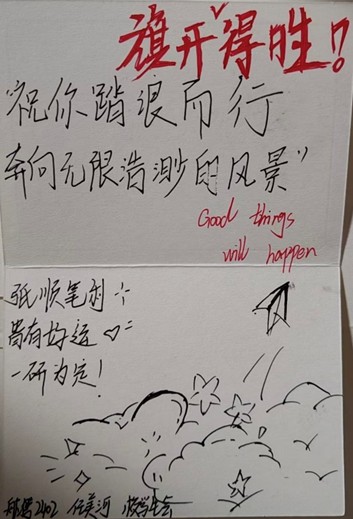 旗开得胜!
祝你踏浪而行
奔向无限浩渺的风景”
Good things
will happen
纸顺笔利
常有好运
一研为定!
2402 任美河 校学生会